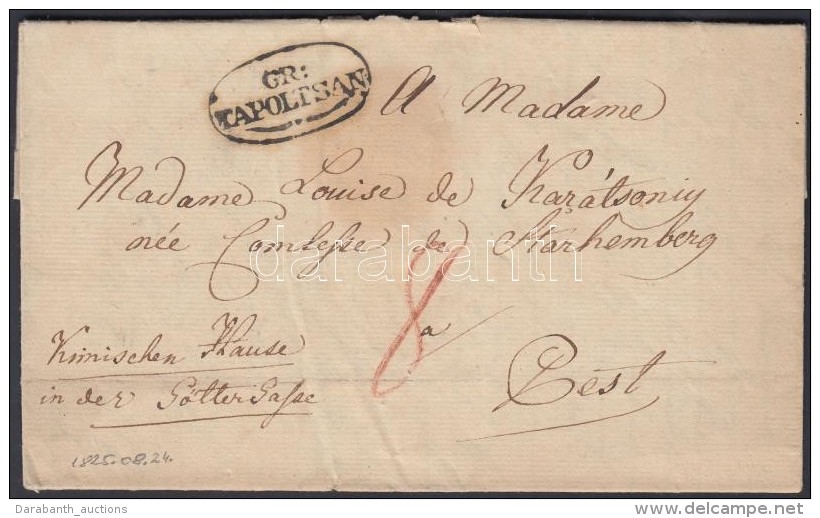 GR:
TAPOLTSAN
A Madame
Madame Louise de Karátsoniy
née Comtesse de Starhemberg
darabanth
8
a
Pest
Kinischen Hause
in der Götter Gasse
1825.08.24.
Darabanth_auctions
delcampe.net